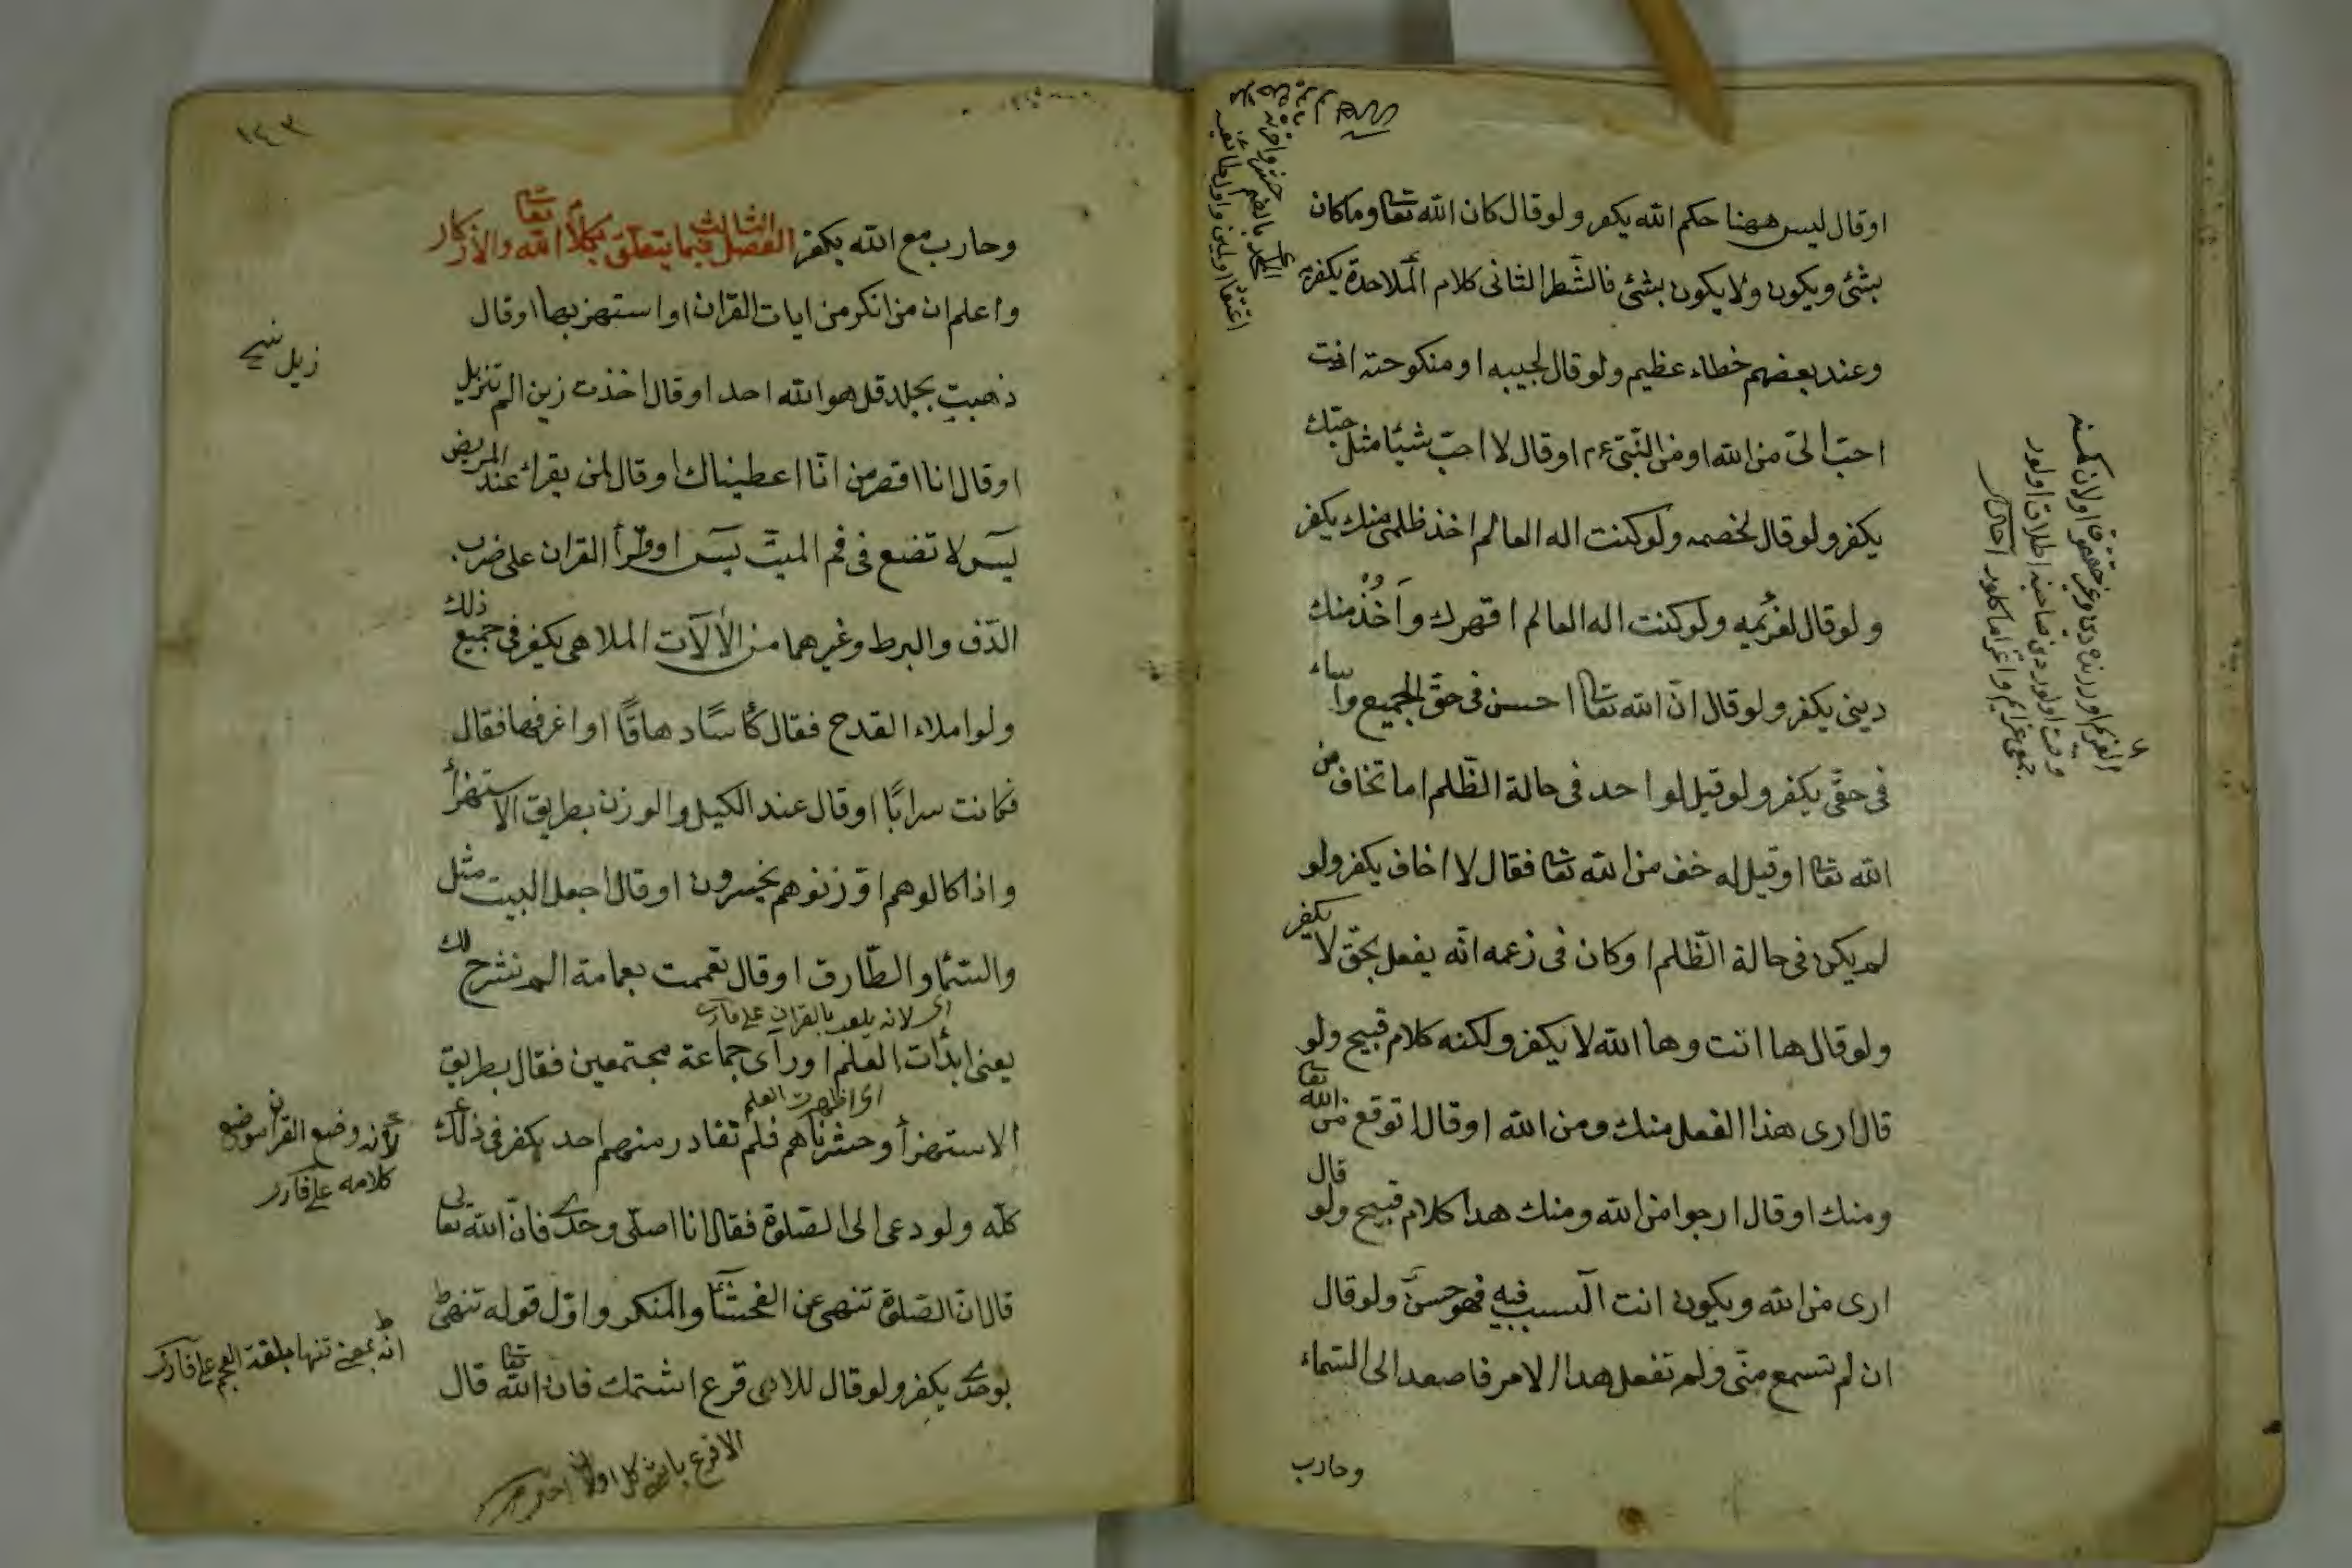 اوقال ليس ههنا حكم الله يكفر ولو قال كان الله تعا وما كان
بشئ ويكون ولا يكون بشئ فالشطر الثانى كلام الملاحدة يكفر به
وعند بعضهم خطاء عظيم ولو قال لحبيبه او منكوحته انت
احبّ الىّ من الله او من النّبىّ عم اوقال لا احبّ شيئا مثل حبّك
يكفر ولو قال لخصمه ولو كنت اله العالم اخذ ظلمى منك يكفر
ولو قال لغريمه ولو كنت اله العالم اقهرك وآخُذُ منك
دينى يكفر ولو قال انّ الله تعا احسن فى حقّ الجميع واساء
فى حقّى يكفر ولو قيل لواحد فى حالة الظّلم اما تخاف من
الله تعا اوقيل له خف من الله تعا فقال لا اخاف يكفر ولو
لم يكن فى حالة الظّلم او كان فى زعمه انّه يفعل بحقّ لا يكفر
ولو قال ها انت وها الله لا يكفر ولكنه كلام قبيح ولو
قال ارى هذا الفعل منك ومن الله اوقال اتوقع من الله تعا
ومنك اوقال ارجوا من الله ومنك هدا كلام قبيح ولو قال
ارى من الله ويكون انت السبب فيه فهو حسن ولو قال
ان لم تسمع منّى ولم تفعل هدا الامر فاصعد الى السّماء
وحارب
١٤٣
وحارب مع الله يكفر الفصل الثالث فيما يتعلق بكلام الله تعا والاذكار
واعلم ان من انكر من ايات القران او استهزء بها اوقال
ذهبت بجلد قل هو الله احد اوقال اخذت زين الم تنزيل
اوقال انا اقصر من انّا اعطيناك اوقال لمن يقراء عند المريض
يسٓ لا تضع فى فم الميّت يسٓ او قرأ القران على ضرب
الدّف والبرط وغيرهما من الالآت الملاهى يكفر فى جميع ذلك
ولو املاء القدح فقال كأسًا دهاقًا او اغرفها فقال
فكانت سرابًا اوقال عند الكيل والوزن بطريق الاستهزأ
واذا كالوهم او وزنوهم يخسرون اوقال اجعل البيت مثل
والسّماء والطّارق اوقال تعممت بعمامة الم نشرح لك
يعنى ابدأت العلم او رآى جماعة مجتمعين فقال بطريق
اى اظهرت العلم
الاستهزأ وحشرناهم فلم نغادر منهم احد يكفر فى ذلك
كلّه ولو دعى الى الصّلوة فقال انا اصلّى وحدى فانّ الله تعالى
قال انّ الصّلوة تنهى عن الفحشآ والمنكر واوّل قوله تنهى
بوحدى يكفر ولو قال للادى قرع اشتمك فان الله تعا قال
لانه وضع القران موضع
كلامه على قارى